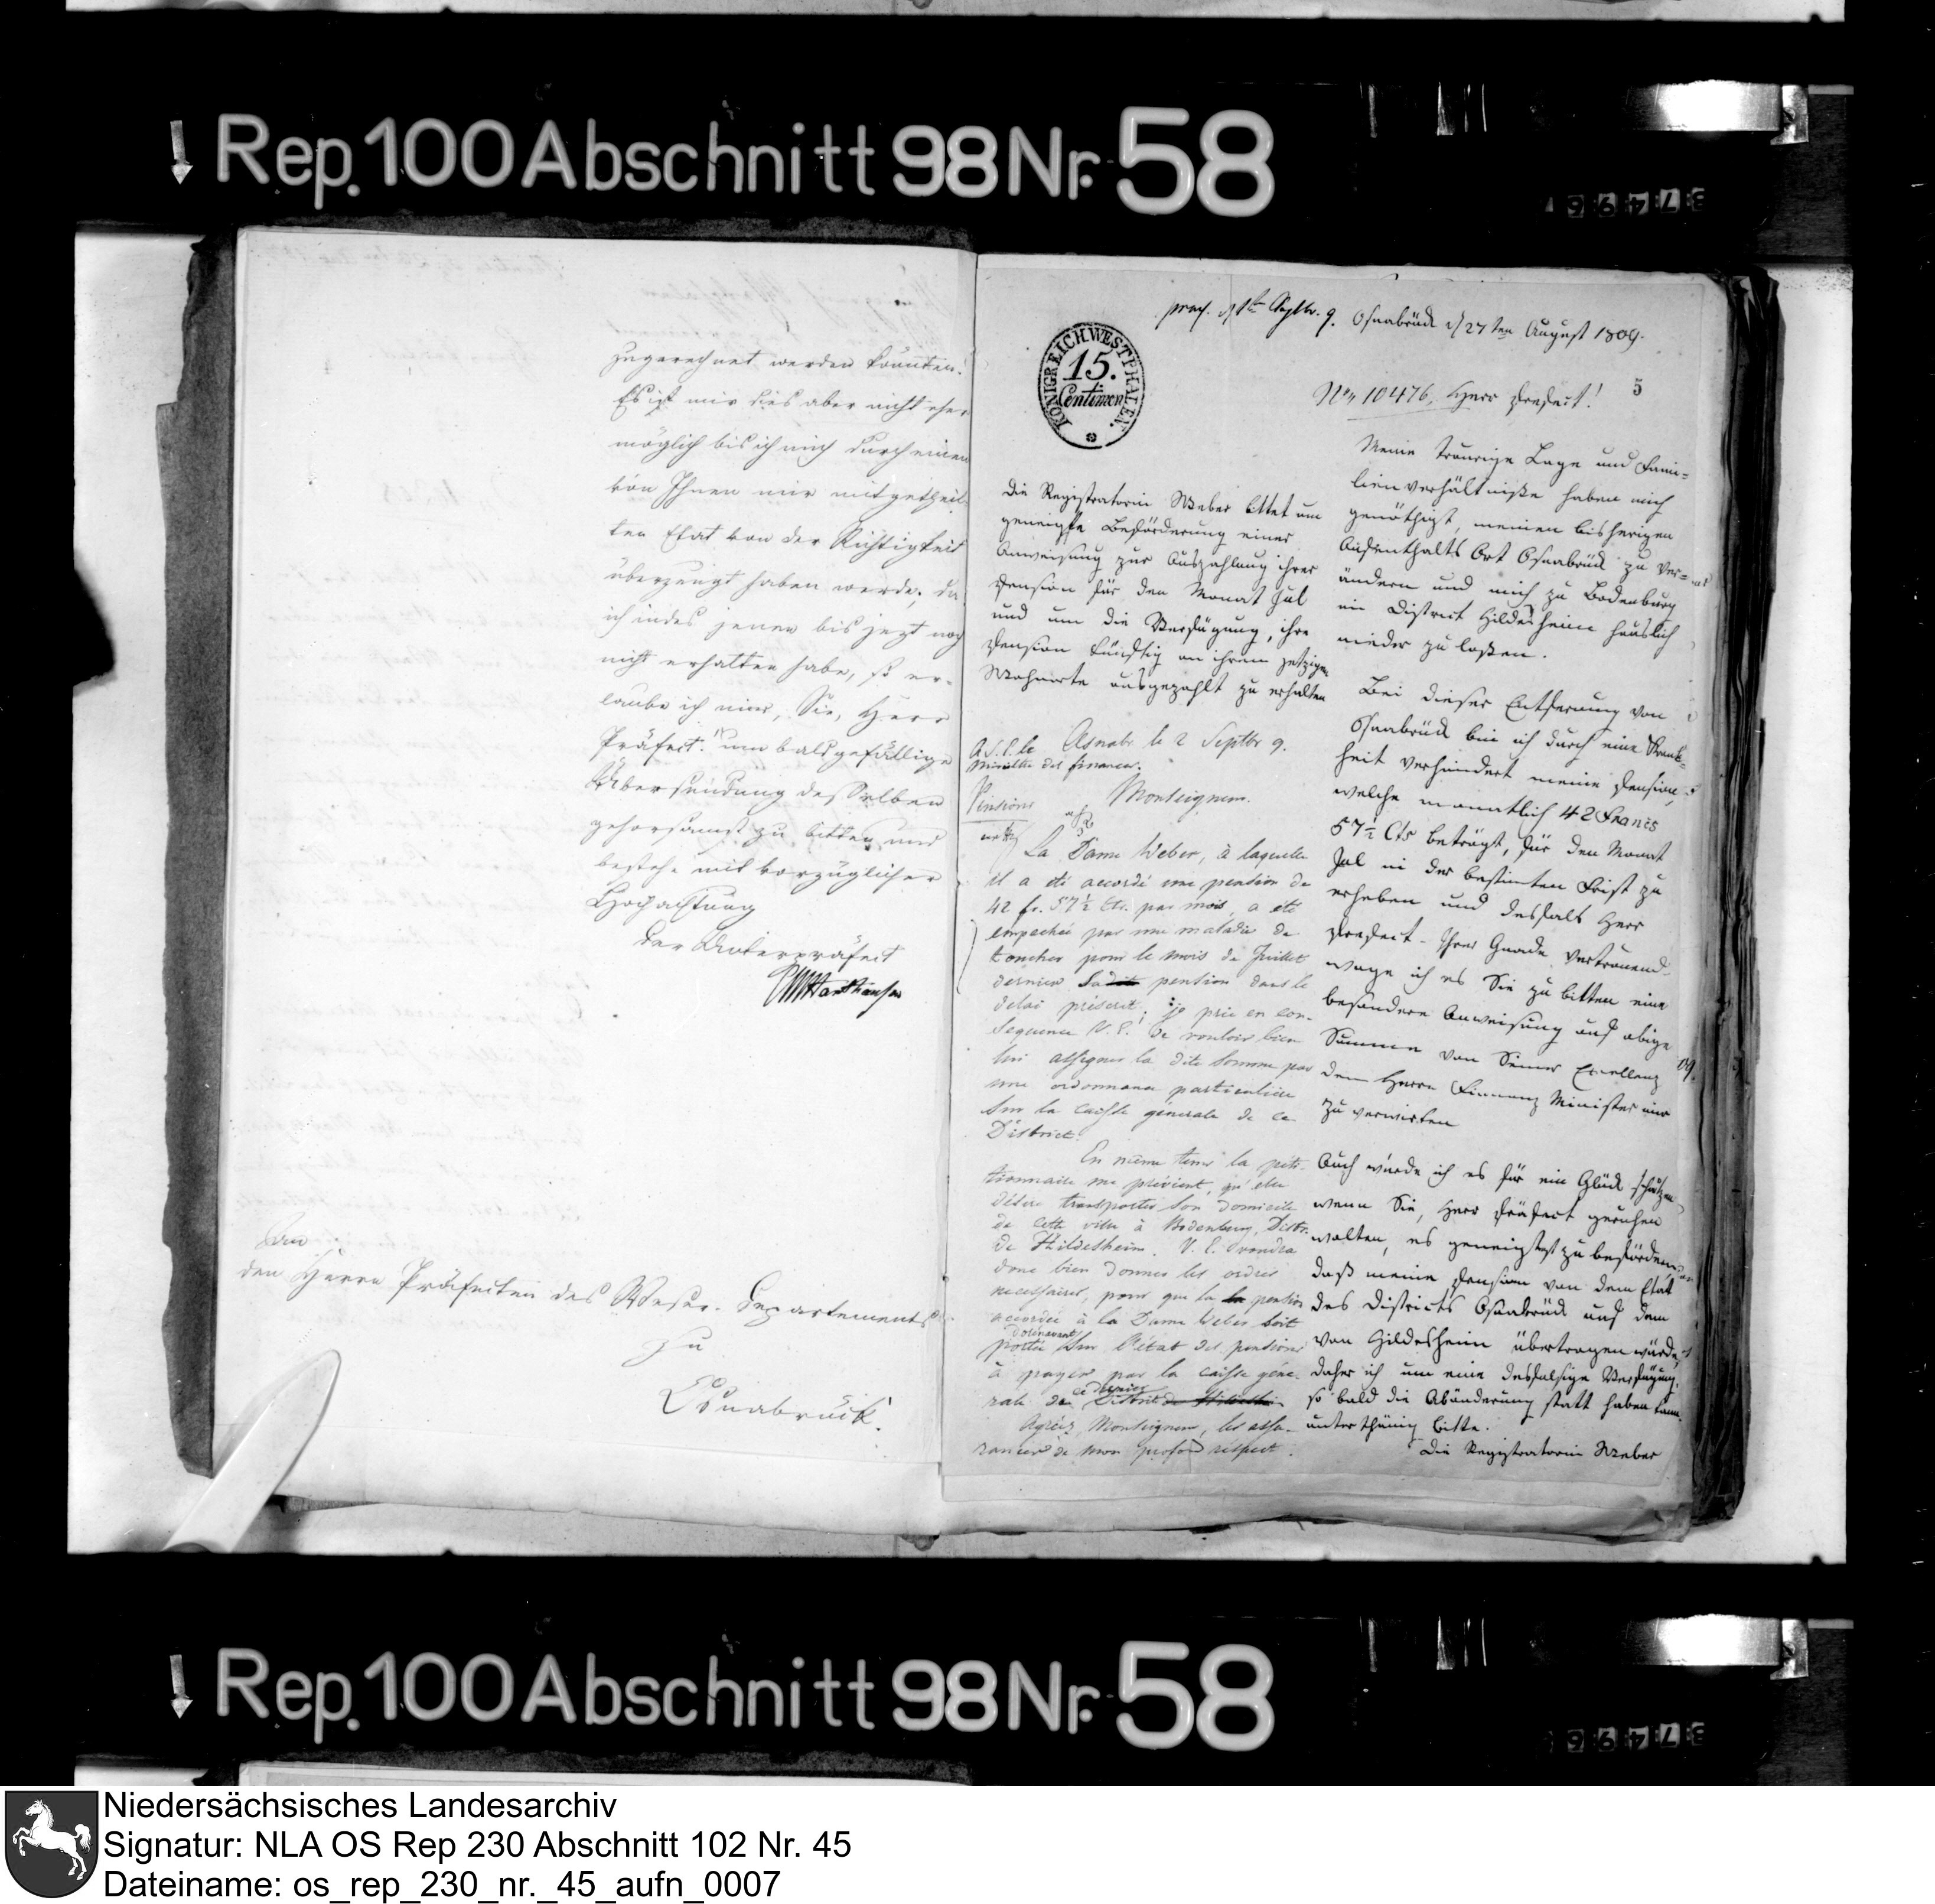 Rep. 100 Abschnitt 98 Nr. 58
zugerechnet werden könnten.
Es ist mir dies aber nicht eher
möglich bis ich mich durch einen
von Ihnen mir mitgetheil-
ten Etat von der Richtigkeit
überzeugt haben werde; da
ich indes jenen bis jezt noch
nicht erhalten habe, so er-
laube ich mir, Sie, Herr
Präfect! um baldgefällige
Übersendung desselben
gehorsamst zu bitten und
bestehe mit vorzüglicher
Hochachtung
Der Unterpräfect
An
den Herrn Präfecten des Weser-Departements
zu
Osnabrück.
praes. d 1te Septbr. 9.
Osnabrück d 27ten August 1809.
KÖNIGREICH WESTPHALEN
15.
Centimen
5
No 10476. Herr Praefect!
Die Registratorin Weber bittet um
geneigte Beförderung einer
Anweisung zur Auszahlung ihrer
Pension für den Monat Jul
und um die Verfügung, ihre
Pension künftig an ihrem jetzigen
Wohnorte ausgezahlt zu erhalten
A S. E. le
Ministre des finances.
Osnabr le 2 Septbr 9.
Pensions
Monseigneur.
La Dame Weber, à laquelle
il a été accordé une pension de
42 fr. 57½ Cts. par mois, a été
empechée par une maladie de
toucher pour le mois de Juillet
dernier sadite pension dans le
delai préscrit. je prie en con-
sequence V. E. de vouloir bien
lui assigner la dite somme par
une ordonnance particulière
sur la caisse générale de ce
District.
En même tems la péti-
tionnaire me prévient, qu'elle
désire transporter son domicile
de cette ville à Bodenburg, Distr.
de Hildesheim. V. E. voudra
donc bien donner les ordres
necessaires, pour que la la pension
accordée à la Dame Weber soit
dorénavant
portée sur l'état des pensions
à payer par la caisse géné-
rale de ce dernier District de Hildesheim
Agréez, Monseigneur, les assu-
rances de mon profond respect.
Meine traurige Lage und Fami-
lienverhältniße haben mich
genöthigt, meinen bisherigen
Aufenthalts Ort Osnabrück zu ver-
ändern und mich zu Bodenburg
im District Hildesheim häuslich
nieder zu laßen.
Bei dieser Entfernung von
Osnabrück bin ich durch eine Krank-
heit verhindert meine Pension,
welche monatlich 42 Francs
57½ Cts beträgt, für den Monat
Jul in der bestimten Frist zu
erheben und desfals Herr
Praefect - Ihrer Gnade vertrauend
wage ich es Sie zu bitten eine
besondere Anweisung auf obige
Summe von Seiner Excellenz
dem Herrn Finnanz Minister mir
zu erwirken
Auch würde ich es für ein Glück schätzen
wenn Sie, Herr Präfect geruhen
wolten, es geneigtest zu befördern
daß meine Pension von dem Etat
des Districts Osnabrück auf dem
von Hildesheim übertragen würde,
daher ich um eine desfalsige Verfügung,
so bald die Abänderung statt haben kann
unterthänig bitte.
Die Registratorin Weber
Rep. 100 Abschnitt 98 Nr. 58
Niedersächsisches Landesarchiv
Signatur: NLA OS Rep 230 Abschnitt 102 Nr. 45
Dateiname: os_rep_230_nr._45_aufn_0007